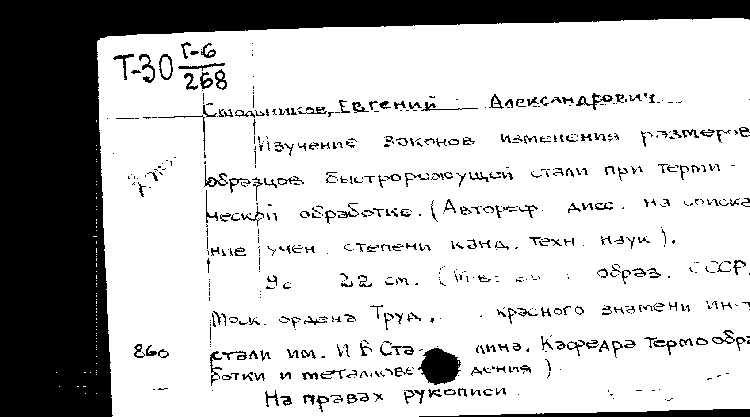 Т-30 Г-6
268
Смольников, Евгений Александрович
Изучение законов изменения размеров
образцов быстрорежущей стали при терми-
ческой обработке. (Автореф. дисс. на соиска
ние учен. степени канд. техн. наук).
9с 22 см. ( образ. СССР.
Моск. ордена Труд. красного знамени ин-т
860 стали им. И В Ста лина. Кафедра термообра
ботки и металлове дения).
На правах рукописи